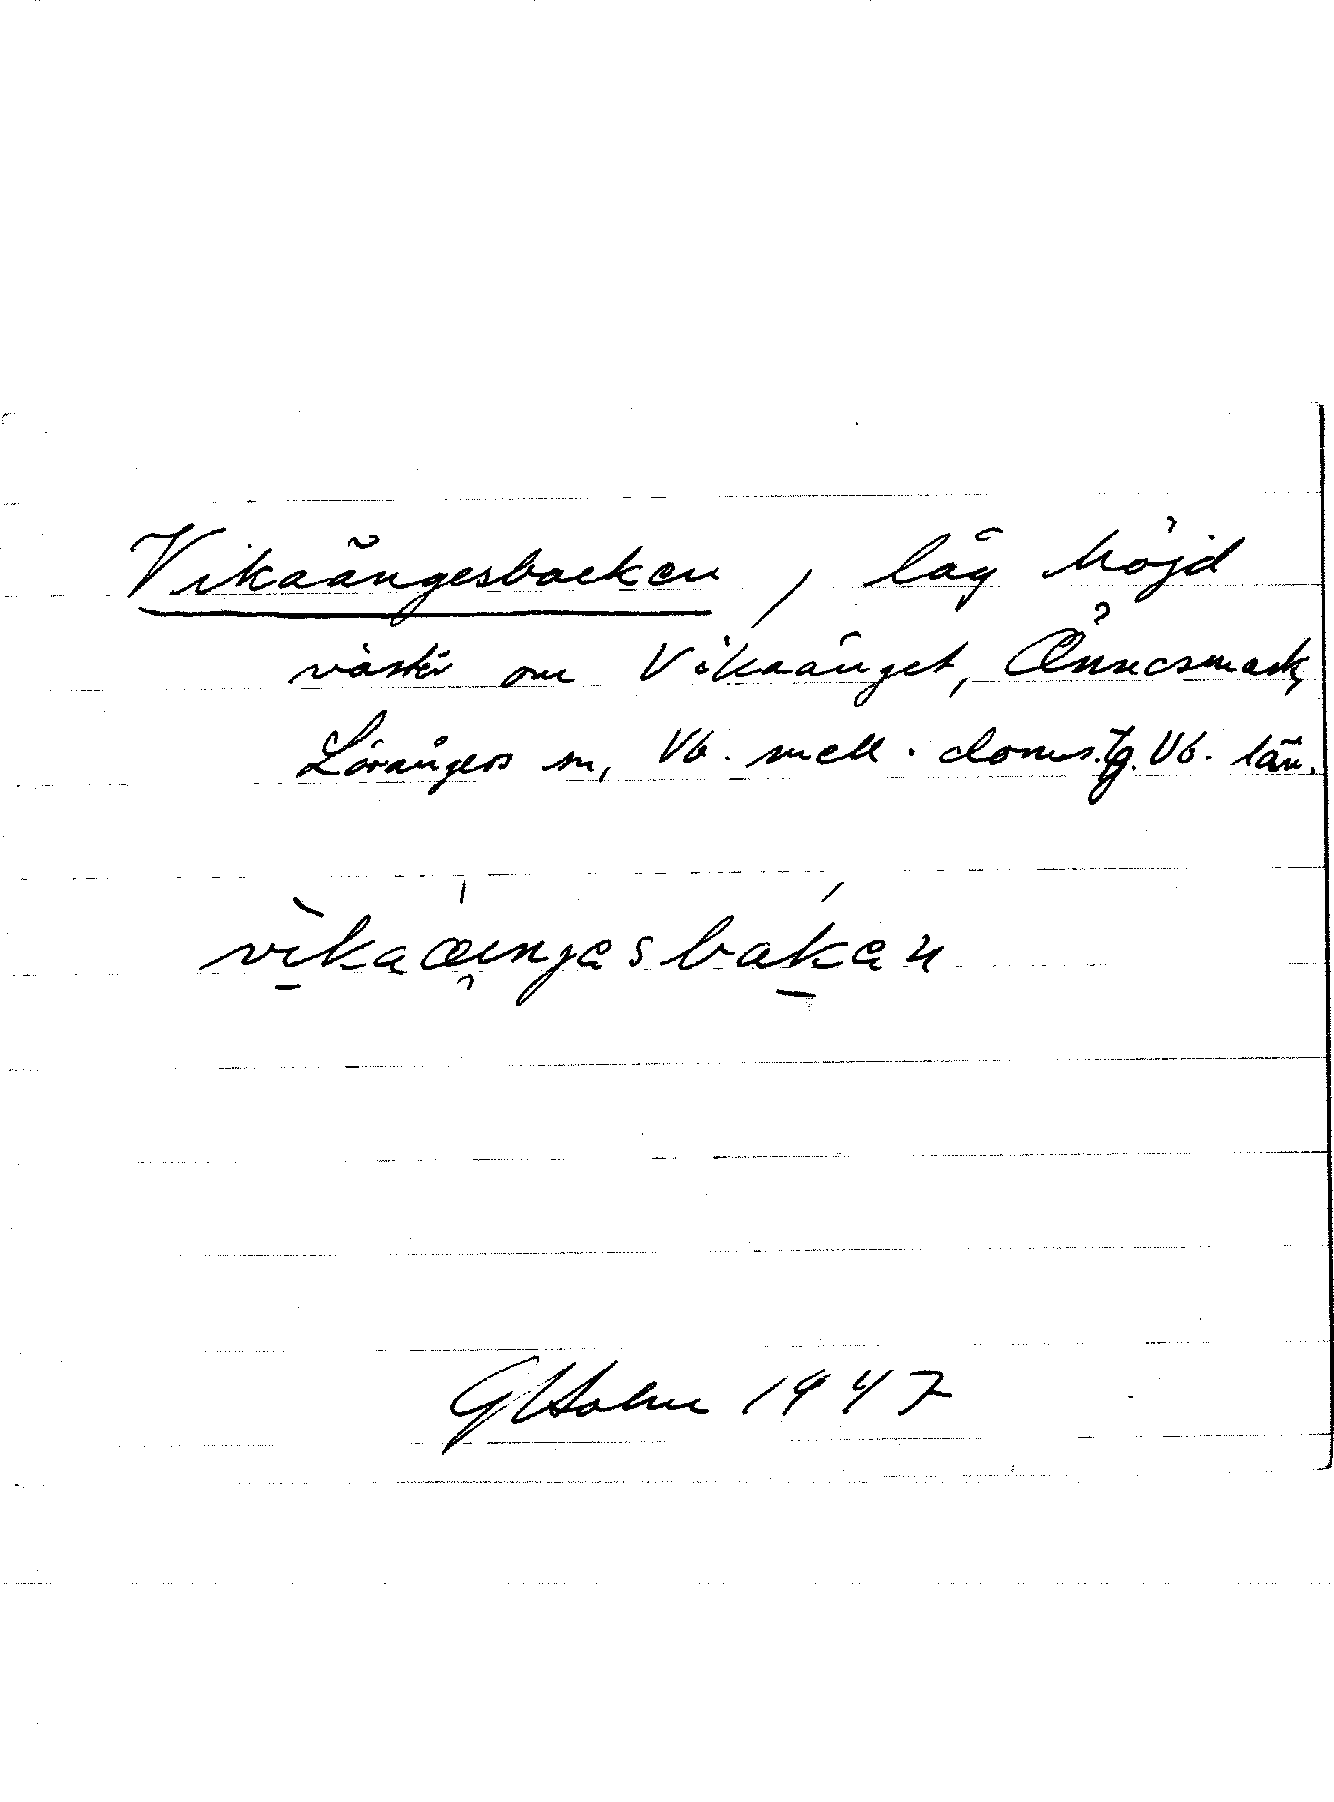 Vikaängesbacken, låg höjd
väster om Vikaänget, Ånnesmark,
Lövångers sn, Vb. mell. doms.tg. Vb. län.
vikaœŋjəsbakən
GHolm 1947